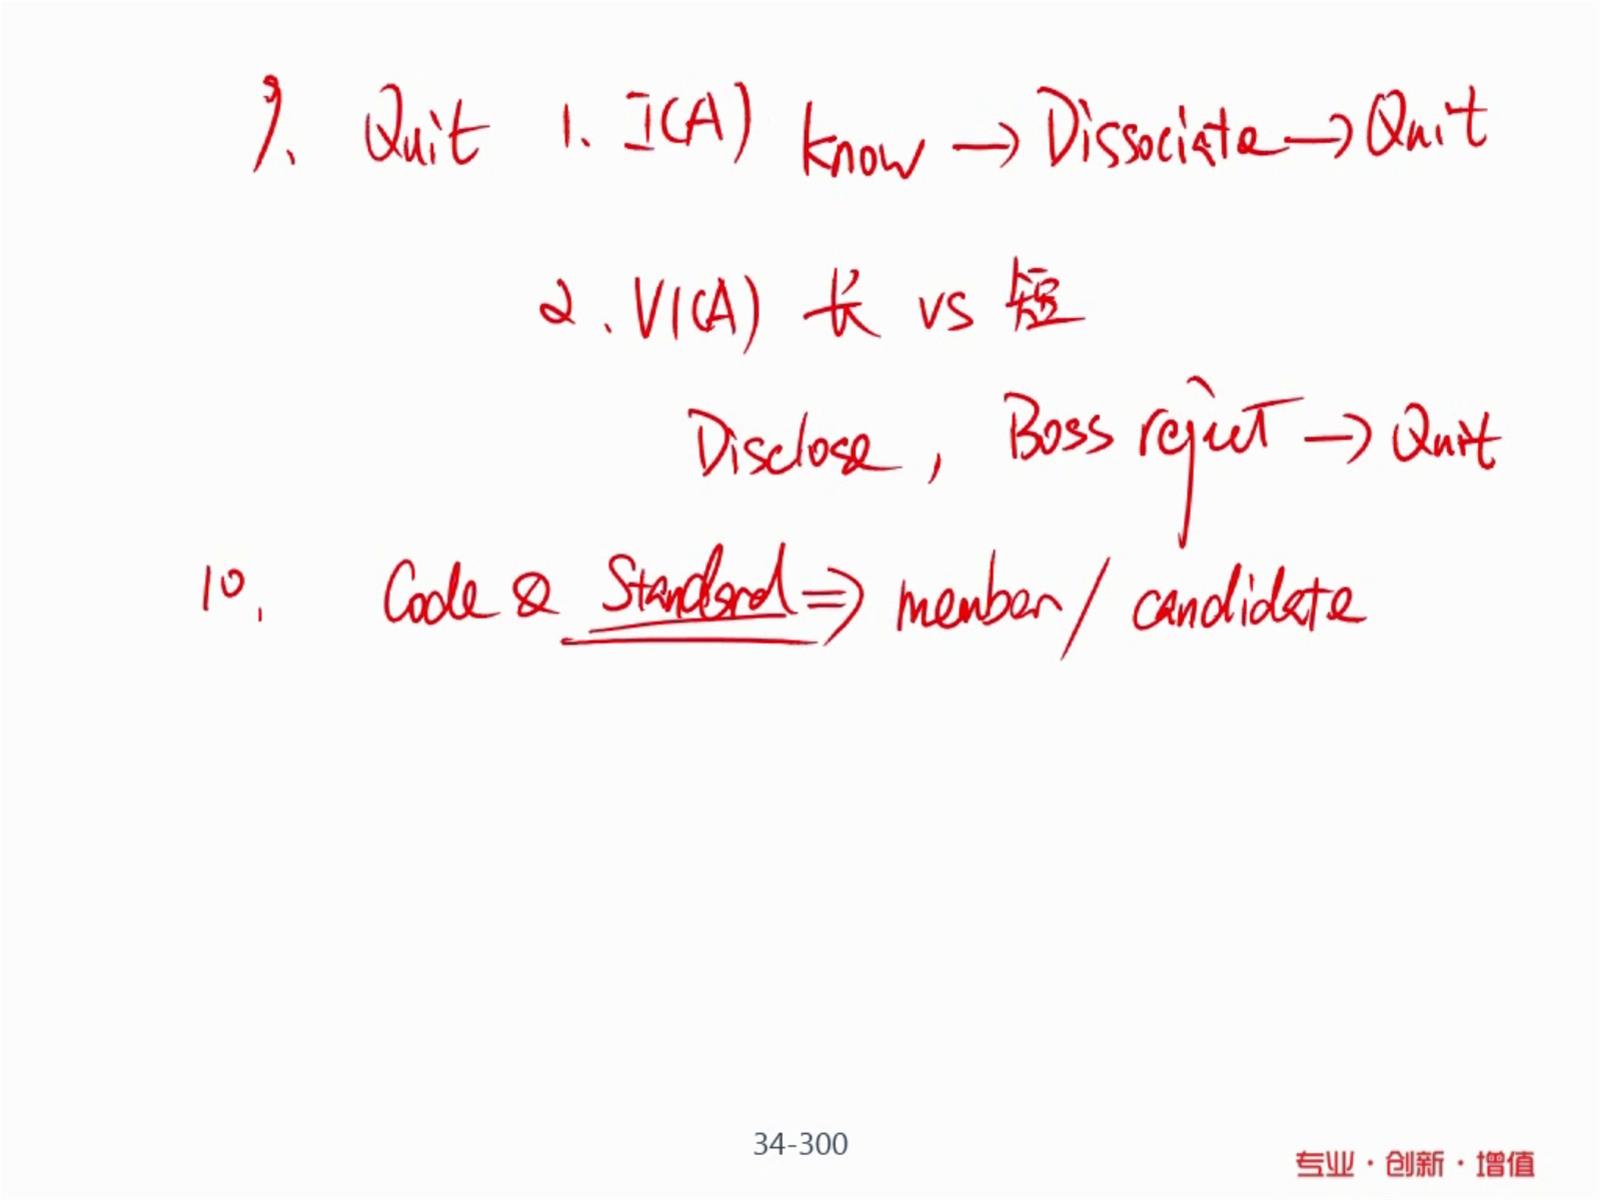 9. Quit 1. I(A) know → Dissociate → Quit
2. VI(A) 长 vs 短
Disclose, Boss reject → Quit
10. Code & Standard ⇒ member / candidate
34-300
专业·创新·增值